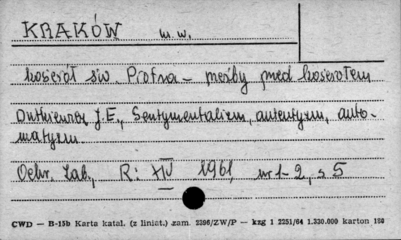 KRAKÓW m.w.
kościół św. Piotra - rzeźby przed kościołem
Dutkiewicz J.E., Sentymentalizm, autentyzm, auto-
matyzm.
Ochr. Zab., R: XIV 1961, nr 1-2, s 5
CWD — B-15b Karta katal. (z liniat.) zam. 2396/ZW/P — kzg 1 2251/64 1.330.000 karton 180